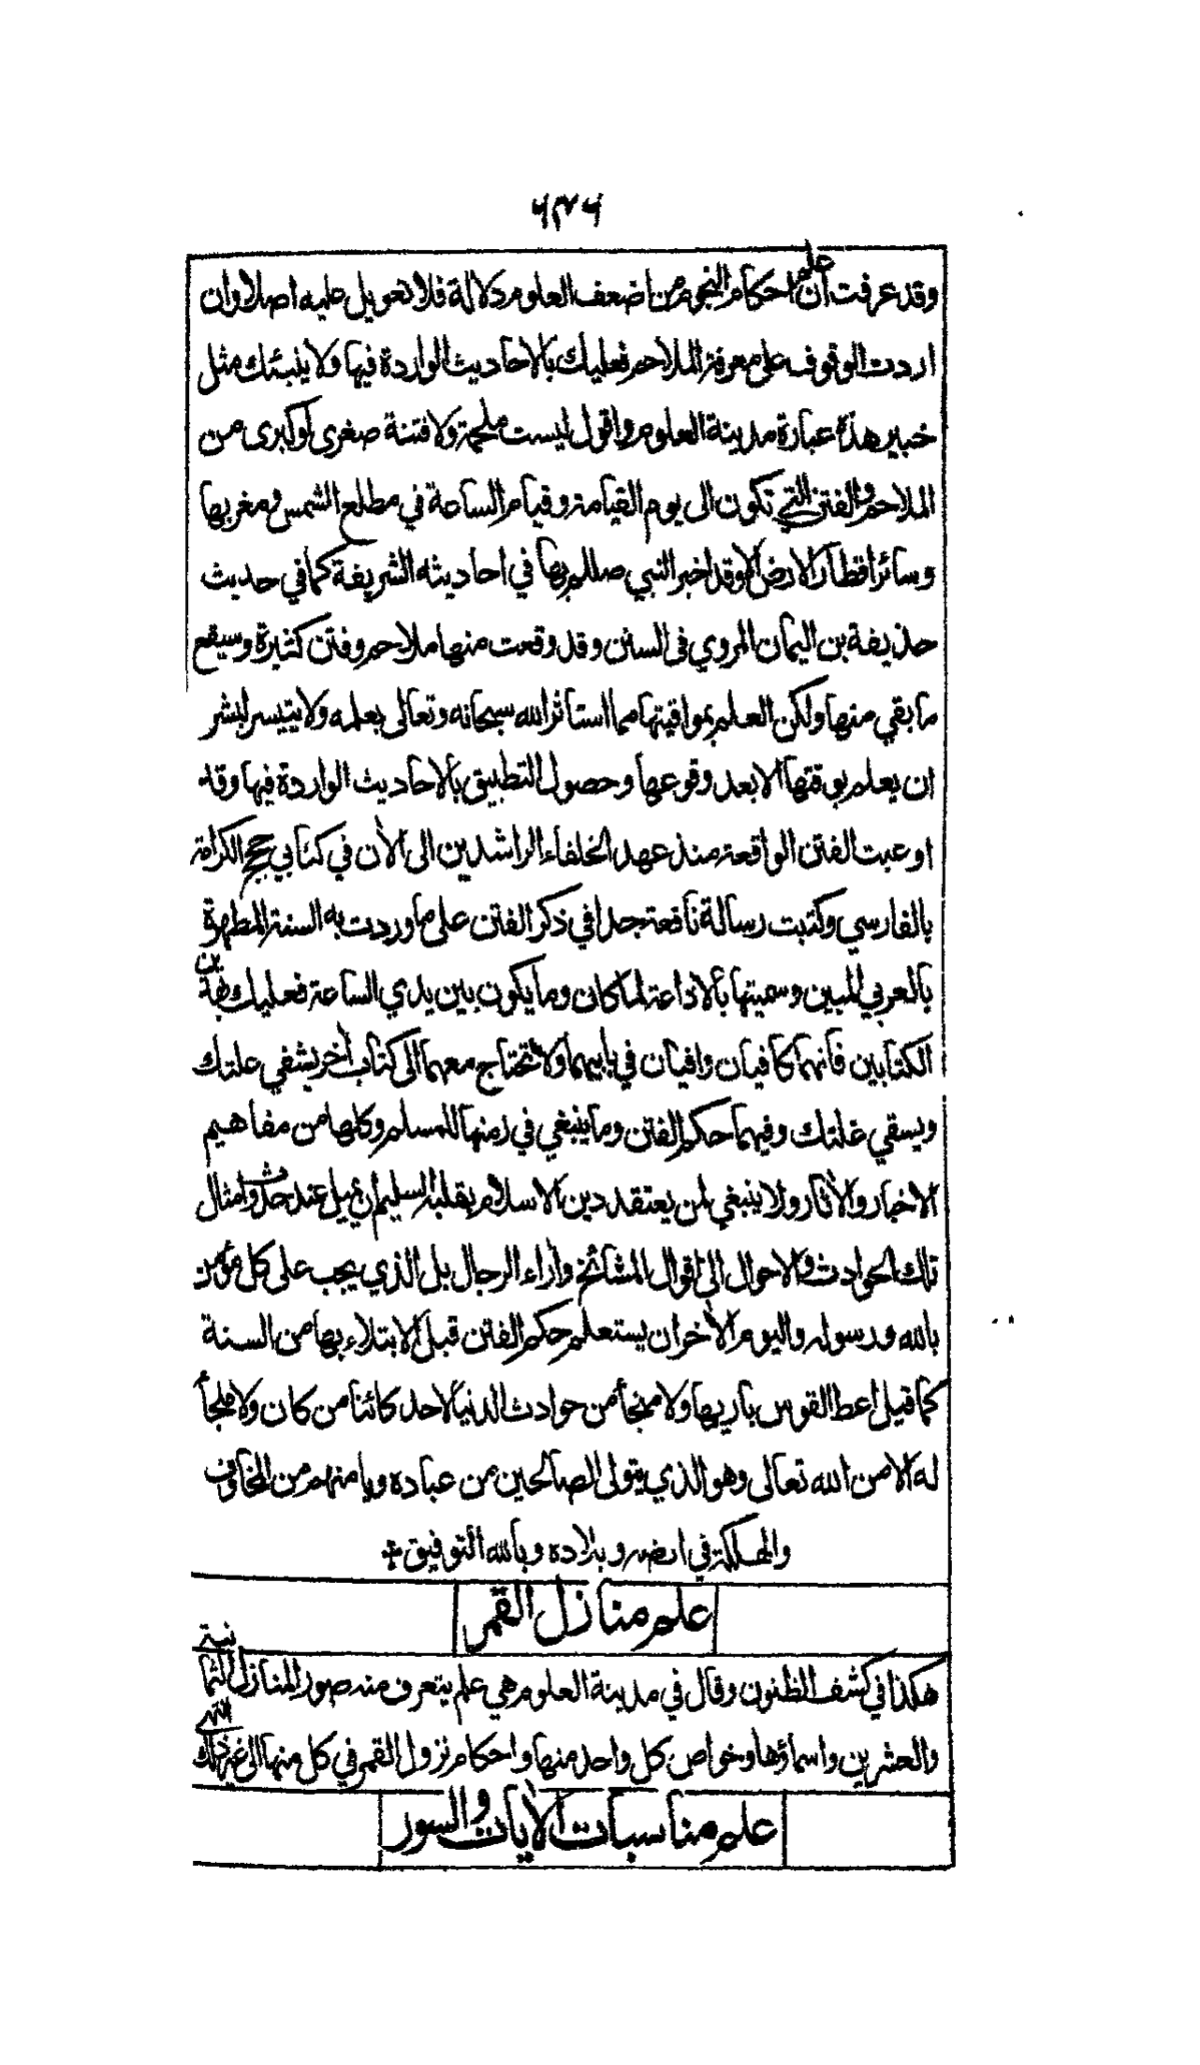 ٦٧٦
وقد عرفت ان علم احكام النجوم من اضعف العلوم دلالة فلا تعويل عليه اصلا وان
اردت الوقوف على معرفة الملاحم فعليك بالاحاديث الواردة فيها ولا ينبئك مثل
خبير هذه عبارة مدينة العلوم واقول ليست ملحمة ولا فتنة صغرى او كبرى من
الملاحم والفتن التي تكون الى يوم القيامة وقيام الساعة في مطلع الشمس ومغربها
وسائر اقطار الارض الا وقد اخبر النبي صللم بها في احاديثه الشريفة كما في حديث
حذيفة بن اليمان المروي فى السنن وقد وقعت منها ملاحم وفتن كثيرة وسيقع
ما بقي منها ولكن العلم بمواقيتها مما استاثر الله سبحانه وتعالى بعلمه ولا يتيسر لبشر
ان يعلم بوقتها الا بعد وقوعها وحصول التطبيق بالاحاديث الواردة فيها وقد
اوعبت الفتن الواقعة منذ عهد الخلفاء الراشدين الى الآن في كتابي حجج الكرامة
بالفارسي وكتبت رسالة نافعة جدا في ذكر الفتن على ما وردت به السنة المطهرة
بالعربي المبين وسميتها بالاذاعة لما كان وما يكون بين يدي الساعة فعليك بهذين
الكتابين فانهما كافيان وافيان في بابيهما ولا تحتاج معهما الى كتاب آخر يشفي علتك
ويسقي غلتك وفيهما حكم الفتن وما ينبغي في زمنها للمسلم وكلها من مفاهيم
الاخبار والآثار ولا ينبغي لمن يعتقد دين الاسلام بقلبه السليم ان يميل عند حدوث امثال
تلك الحوادث والاحوال الى اقوال المشائخ وآراء الرجال بل الذي يجب على كل مؤمن
بالله ورسوله واليوم الآخر ان يستعلم حكم الفتن قبل الابتلاء بها من السنة
كما قيل اعط القوس باريها ولا منجأ من حوادث الدنيا لاحد كائنا من كان ولا ملجأ
له الا من الله تعالى وهو الذي يتولى الصالحين من عباده ويا منهم من المخاوف
والهلكة في ارضه وبلاده وبالله التوفيق +
علم منازل القمر
هكذا في كشف الظنون وقال في مدينة العلوم هي علم يتعرف منه صور المنازل الثمانية
والعشرين واسماؤها وخواص كل واحد منها واحكام نزول القمر في كل منها الى غير ذلك انتهى
علم مناسبات الآيات والسور